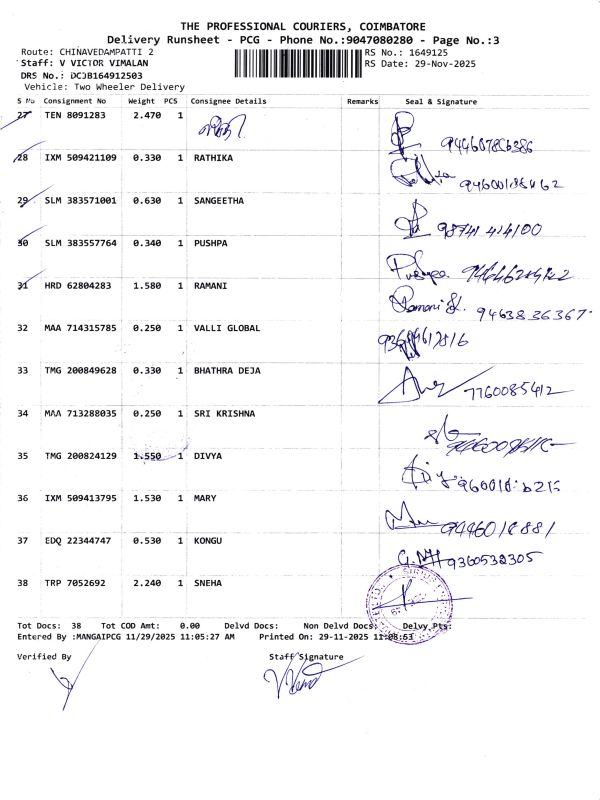 THE PROFESSIONAL COURIERS, COIMBATORE
Delivery Runsheet - PCG - Phone No.:9047080280 - Page No.:3
Route: CHINAVEDAMPATTI 2
RS No.: 1649125
Staff: V VICTOR VIMALAN
RS Date: 29-Nov-2025
DRS No.: DCJB164912503
Vehicle: Two Wheeler Delivery
S No Consignment No Weight PCS Consignee Details Remarks Seal & Signature
27 TEN 8091283 2.470 1
28 IXM 509421109 0.330 1 RATHIKA
29 SLM 383571001 0.630 1 SANGEETHA
98741 414100
30 SLM 383557764 0.340 1 PUSHPA
31 HRD 62804283 1.580 1 RAMANI
Ramani 9463836367
32 MAA 714315785 0.250 1 VALLI GLOBAL
33 TMG 200849628 0.330 1 BHATHRA DEJA
7760085412
34 MAA 713288035 0.250 1 SRI KRISHNA
35 TMG 200824129 1.550 1 DIVYA
36 IXM 509413795 1.530 1 MARY
37 EDQ 22344747 0.530 1 KONGU
9360532305
38 TRP 7052692 2.240 1 SNEHA
Tot Docs: 38 Tot COD Amt: 0.00 Delvd Docs: Non Delvd Docs: Delvy Pts:
Entered By :MANGAIPCG 11/29/2025 11:05:27 AM Printed On: 29-11-2025 11:08:53
Verified By Staff Signature